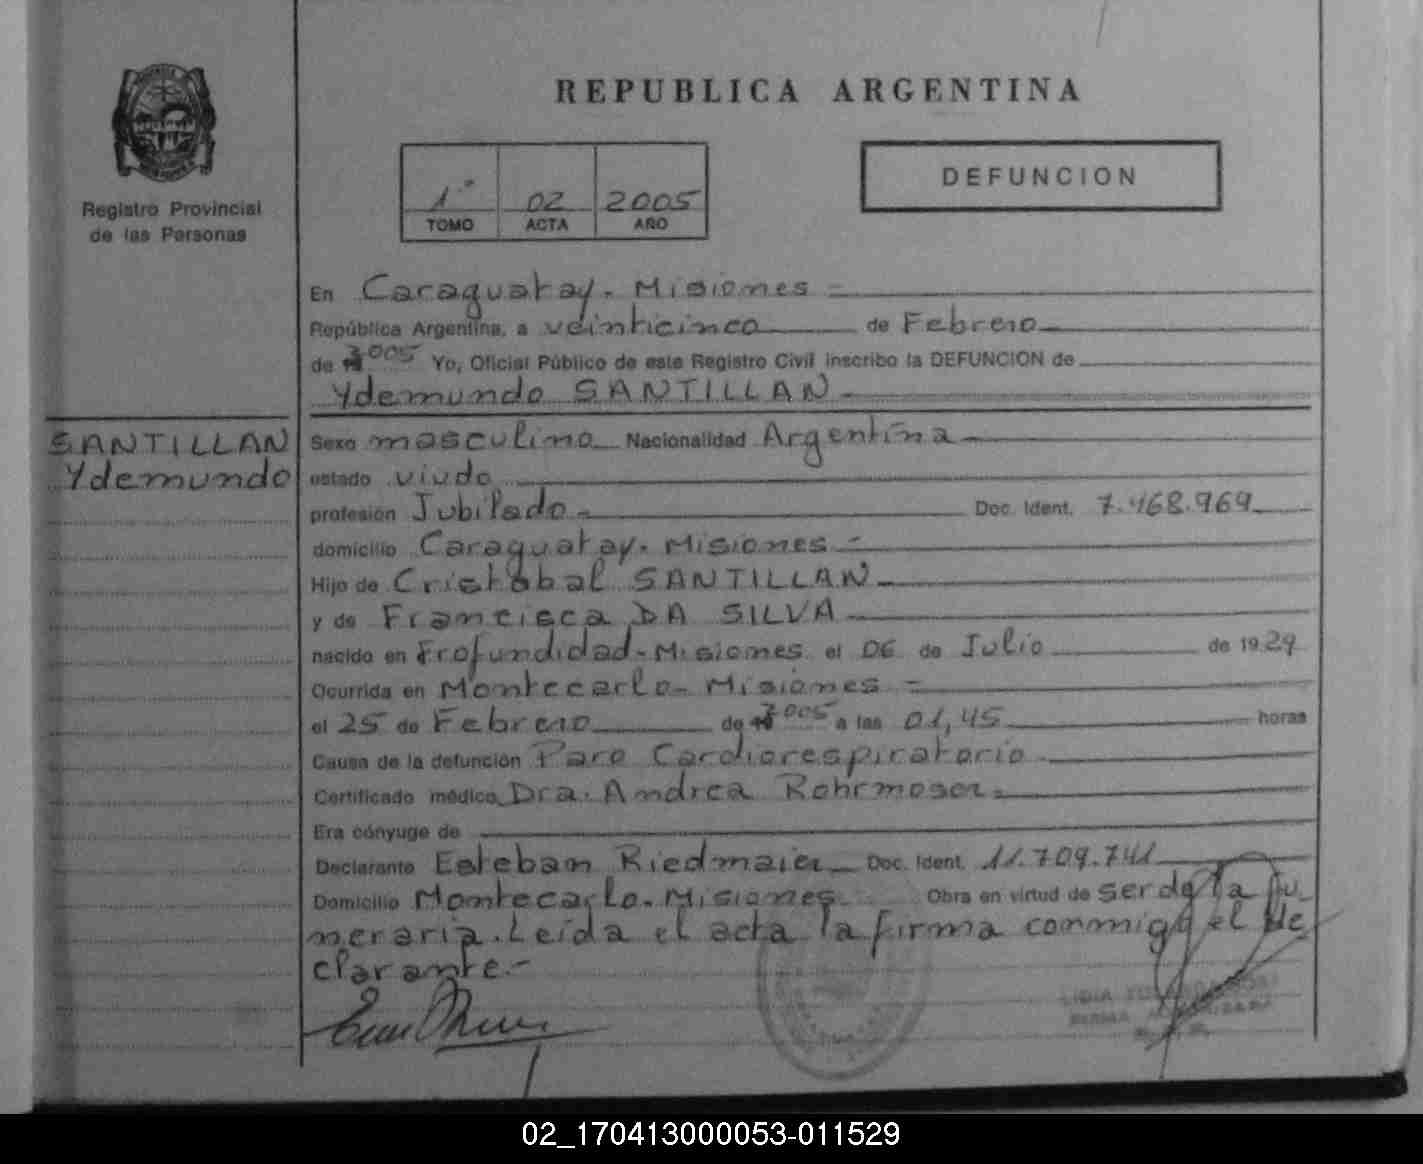 REPUBLICA ARGENTINA
Registro Provincial
de las Personas
1º 02 2005
TOMO ACTA AÑO
DEFUNCION
En Caraguatay - Misiones -
República Argentina, a veinticinco de Febrero
de 2005 Yo, Oficial Público de este Registro Civil inscribo la DEFUNCION de
Ydemundo SANTILLAN
SANTILLAN
Ydemundo
Sexo masculino Nacionalidad Argentina
estado viudo
profesión Jubilado - Doc. Ident. 7.468.969
domicilio Caraguatay - Misiones -
Hijo de Cristobal SANTILLAN
y de Francisca DA SILVA
nacido en Profundidad - Misiones el 06 de Julio de 1929
Ocurrida en Montecarlo - Misiones -
el 25 de Febrero de 2005 a las 01,45 horas
Causa de la defunción Paro Cardiorespiratorio
Certificado médico Dra. Andrea Rohrmoser
Era cónyuge de
Declarante Esteban Riedmaier Doc. Ident. 11.709.741
Domicilio Montecarlo - Misiones Obra en virtud de ser de la fu
neraria. Leída el acta la firma conmigo el de
clarante.-
LIDIA
02_170413000053-011529